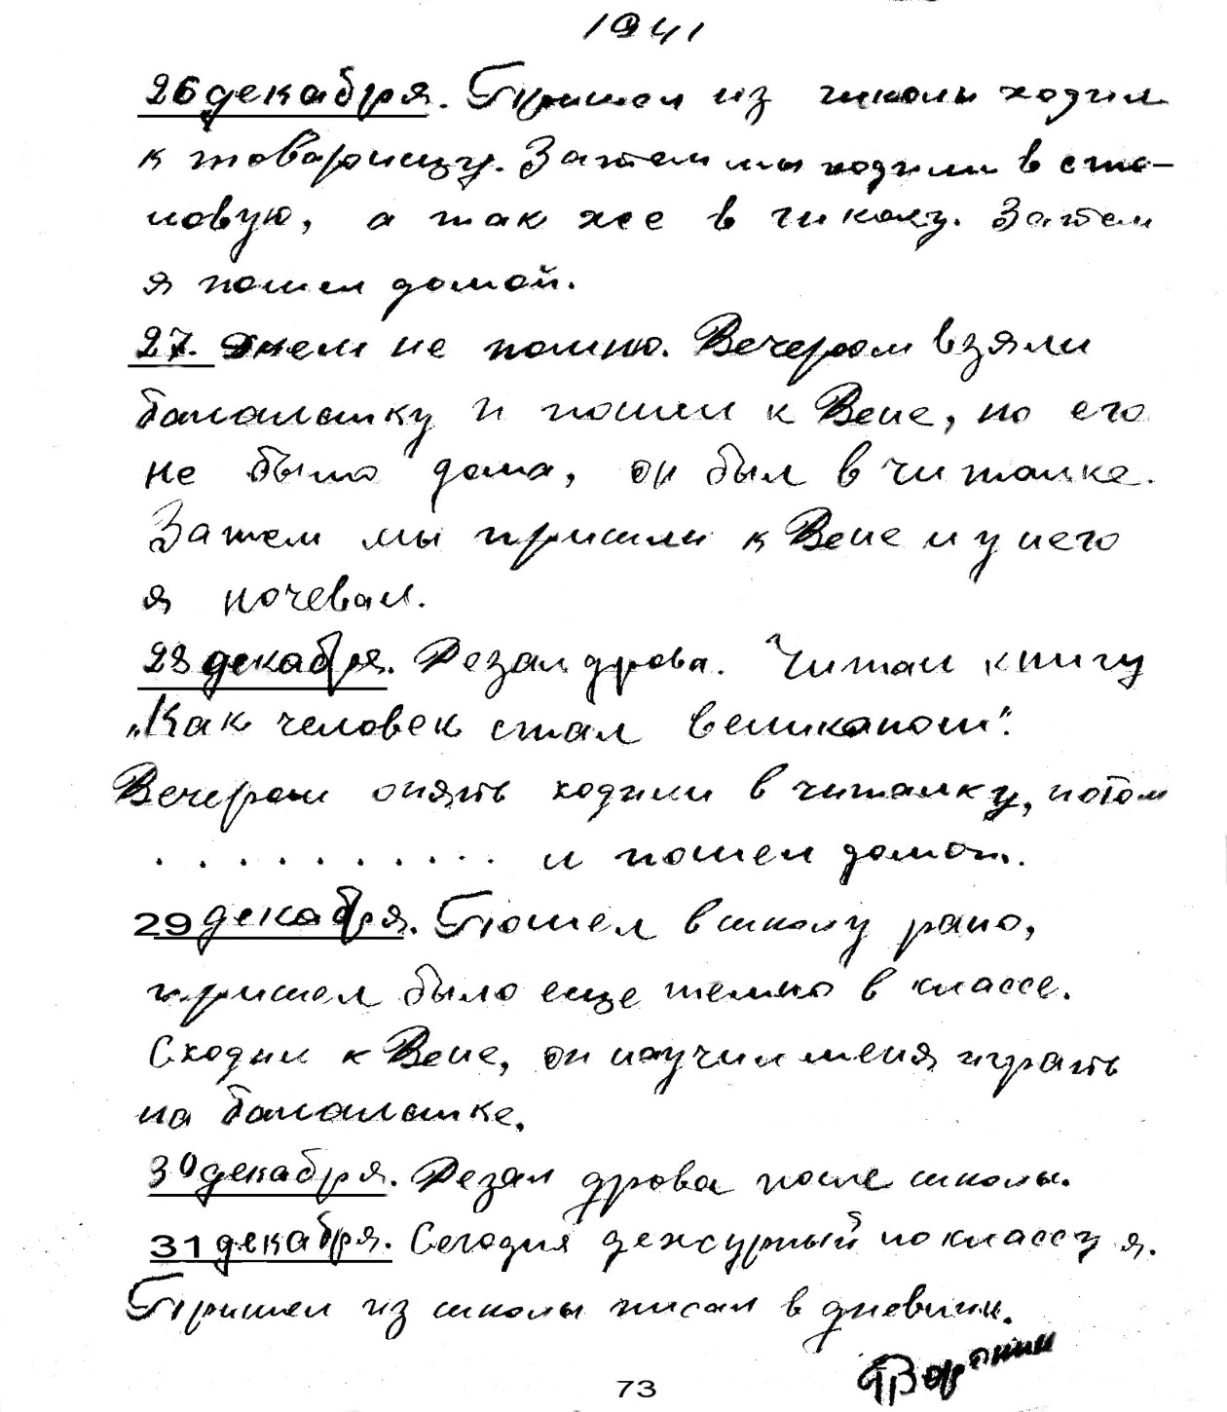 1941
26 декабря. Пришел из школы ходил
к товарищу. Затем мы ходили в сто-
ловую, а так же в школу. Затем
я пошел домой.
27. Днем не помню. Вечером взяли
балалайку и пошли к Вене, но его
не было дома, он был в читалке.
Затем мы пришли к Вене и у него
я ночевал.
28 декабря. Резал дрова. Читал книгу
„Как человек стал великаном".
Вечером опять ходили в читалку, потом
. . . . . . . . . . . и пошел домой.
29 декабря. Пошел в школу рано,
пришел было еще темно в классе.
Сходил к Вене, он научил меня играть
на балалайке.
30 декабря. Резал дрова после школы.
31 декабря. Сегодня дежурный по классу я.
Пришел из школы писал в дневник.
Воронин
73